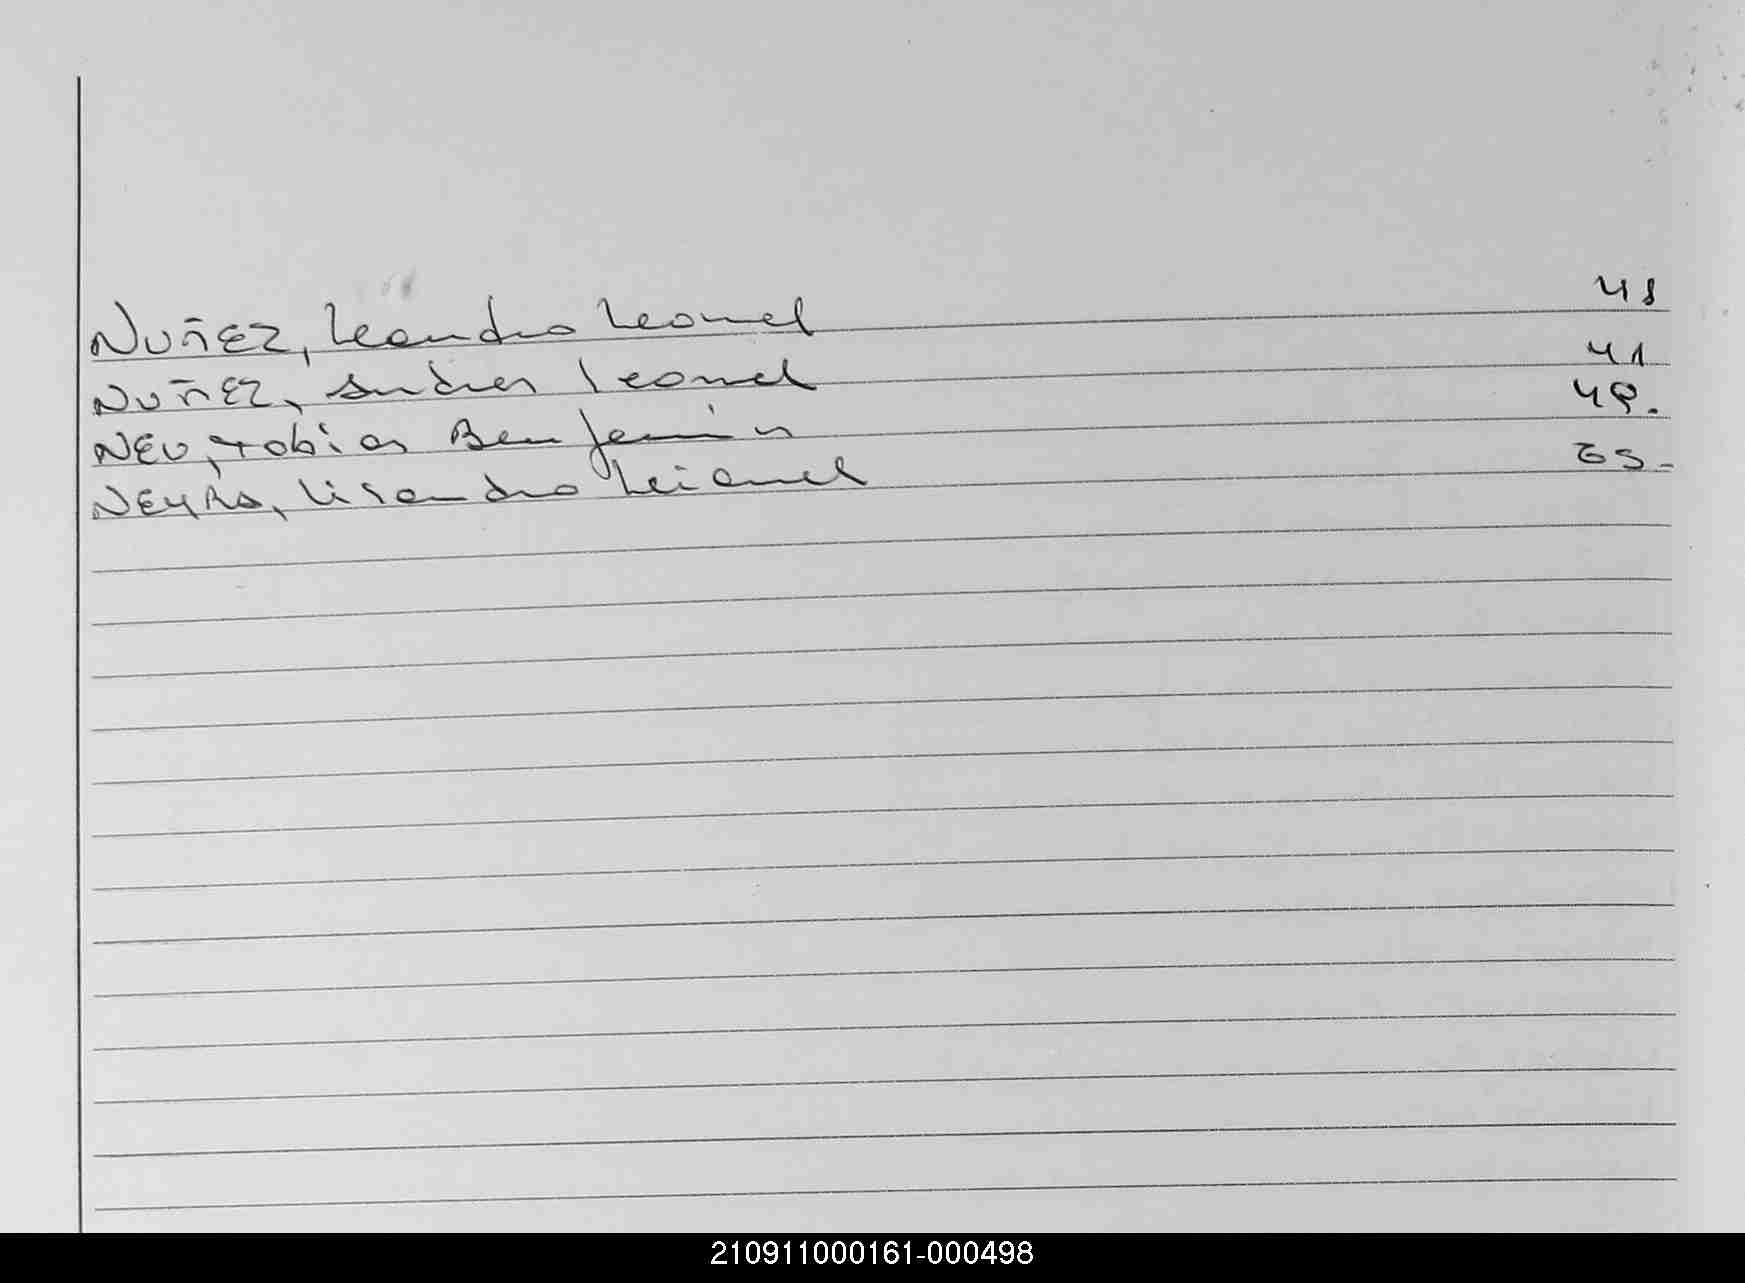 NUÑEZ, Leandro Leonel 41
NUÑEZ, Andres Leonel 41
NEU, Tobias Benjamín 49.
NEYRA, Lisandro Leionel
210911000161-000498